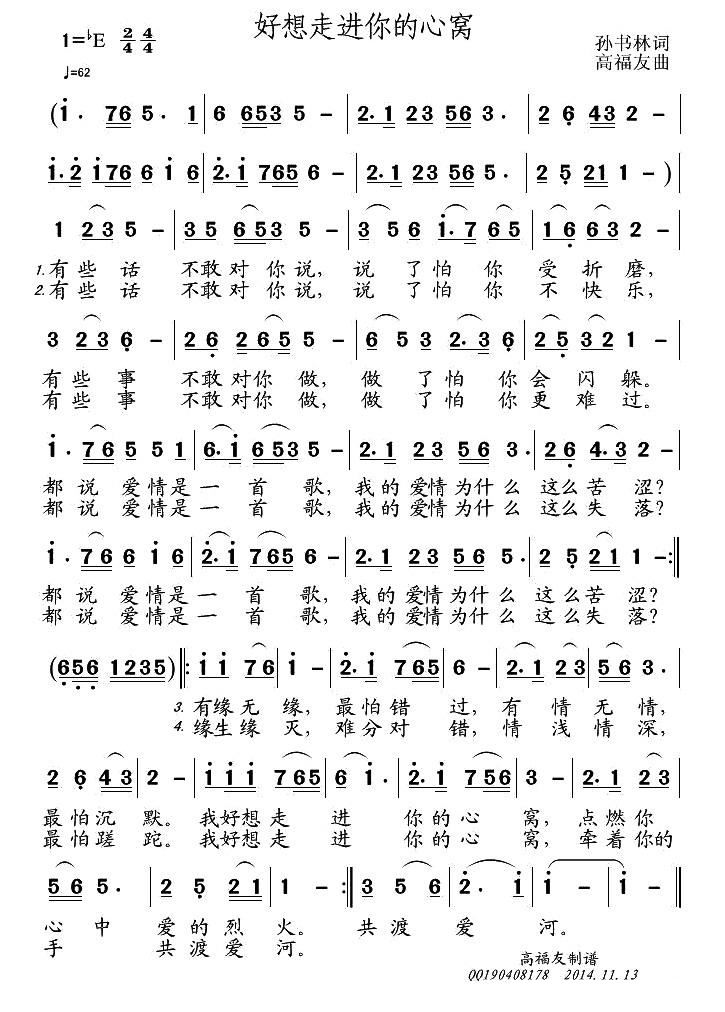 好想走进你的心窝
1=♭E 2/4 4/4
孙书林词
♩=62
高福友曲
(i· 76 5· 1 | 6 653 5 - | 2·1 23 56 3· | 2 6 43 2 - |
i·2 i76 6 i 6 | 2·i 765 6 - | 2·1 23 56 5· | 2 5 21 1 - )
1 23 5 - | 35 653 5 - | 3 56 i·7 65 | 16 63 2 - |
1.有些话 不敢对你说，说了怕你受折磨，
2.有些话 不敢对你说，说了怕你不快乐，
3 23 6 - | 26 265 5 - | 6 53 2·3 6 | 25 32 1 - |
有些事 不敢对你做，做了怕你会闪躲。
有些事 不敢对你做，做了怕你更难过。
i· 76 5 51 | 6·i 653 5 - | 2·1 23 56 3· | 26 4·3 2 - |
都说爱情是一首歌，我的爱情为什么这么苦涩？
都说爱情是一首歌，我的爱情为什么这么失落？
i· 76 6 i6 | 2·i 765 6 - | 2·1 23 56 5· | 25 21 1 - :||
都说爱情是一首歌，我的爱情为什么这么苦涩？
都说爱情是一首歌，我的爱情为什么这么失落？
(656 1235) ||: ii 76 | i - | 2·i 765 | 6 - | 2·1 23 | 56 3· |
3.有缘无缘，最怕错过，有情无情，
4.缘生缘灭，难分对错，情浅情深，
26 43 | 2 - | iii 765 | 6 i· | 2·i 756 | 3 - | 2·1 23 |
最怕沉默。我好想走进你的心窝，点燃你
最怕蹉跎。我好想走进你的心窝，牵着你的
56 5· | 25 21 | 1 - :|| 3 56 | 2· i | i - | i - ||
心中爱的烈火。共渡爱河。
手共渡爱河。
高福友制谱
QQ190408178 2014.11.13